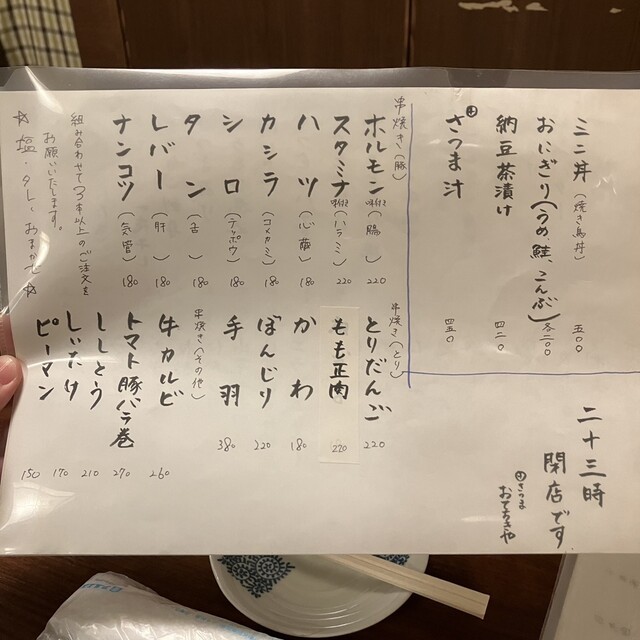 ミニ丼(焼き鳥丼) 五〇〇
おにぎり(うめ、鮭、こんぶ) 各二〇〇
納豆茶漬け 四二〇
さつま汁 四五〇
串焼き(豚)
ホルモン 味付き (腸) 220
スタミナ 味付き (ハラミ) 220
ハツ(心臓) 180
カシラ(コメカミ) 180
シロ(テッポウ) 180
タン(舌) 180
レバー(肝) 180
ナンコツ(気管) 180
組み合わせて3本以上のご注文を
お願いいたします。
☆塩・タレ、おまかせ☆
串焼き(とり)
とりだんご 220
もも正肉 220
かわ 180
ぼんじり 220
手羽 380
串焼き(その他)
牛カルビ 260
トマト豚バラ巻 270
ししとう 210
しいたけ 170
ピーマン 150
二十三時
閉店です
さつま
おてちきや